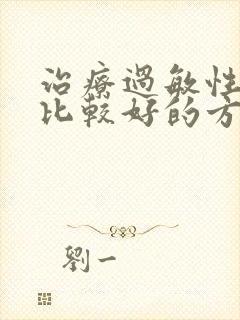 治療過敏性
比較好的方
劉一